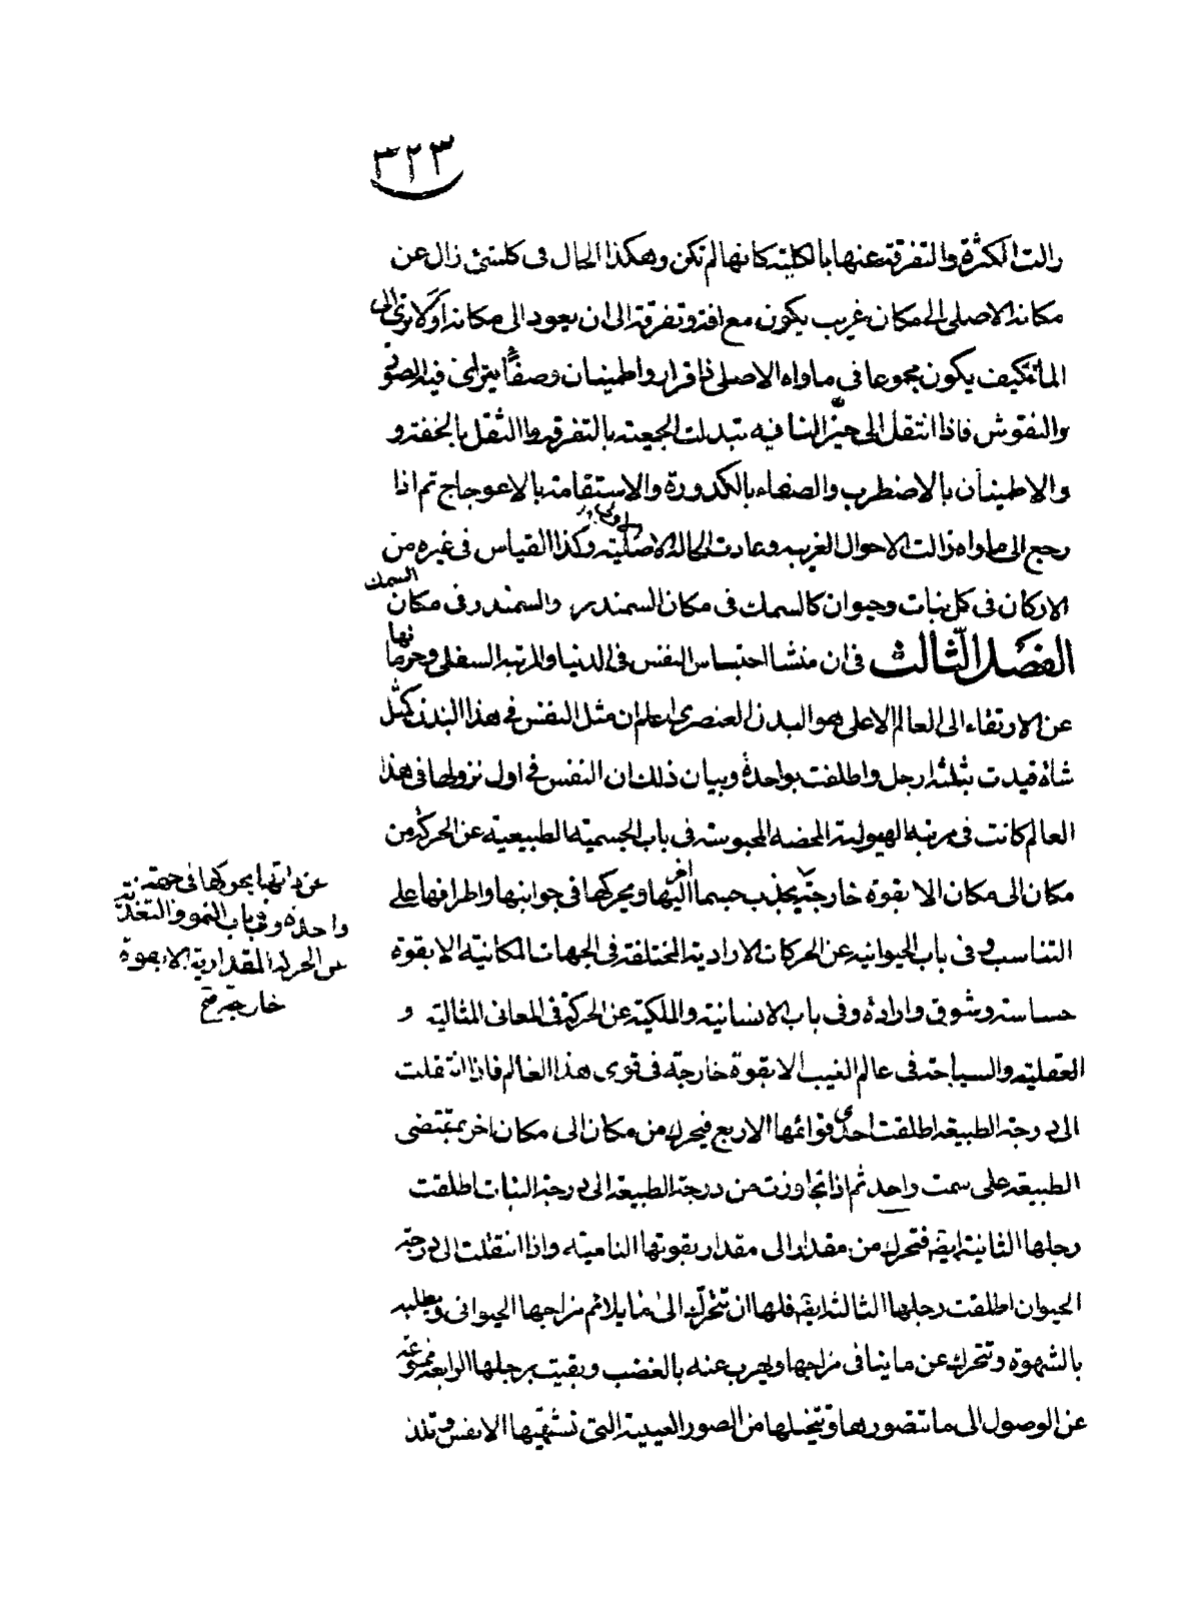 ٣٢٣
زالت الكثرة والتفرقة عنها بالكلية كانها لم تكن وهكذا الحال فى كلشئ زال عن
مكانه الاصلى الى مكان غريب يكون مع افة وتفرقة الى ان يعود الى مكانه اولا ترى الى
الماء كيف يكون مجموعا فى ماواه الاصلى ذا قرار واطمينان وصفاء يترائى فيه الصور
والنقوش فاذا انتقل الى حيز النافيه تبدلت الجمعية بالتفرقة والثقل بالخفة و
والاطمينان بالاضطرب والصفاء بالكدورة والاستقامة بالاعوجاج ثم اذا
رجع الى ماواه زالت الاحوال الغريبه وعادت الى حالة الاصلية وكذا القياس فى غيره من
الاركان فى كل نبات وحيوان كالسمك فى مكان السمندر والسمندر فى مكان السمك
الفصل الثالث فى ان منشا احتباس النفس فى الدنيا والمرتبه السفلى وحرمانها
عن الارتقاء الى العالم الاعلى هو البدن العنصرى اعلم ان مثل النفس فى هذا البدن كمثل
شاة قيدت بثلثه ارجل واطلقت بواحدة وبيان ذلك ان النفس فى اول نزولها فى هذا
العالم كانت فى مرتبه الهيولية المحضه المحبوسة فى باب الجسمية الطبيعية عن الحركة من
مكان الى مكان الا بقوة خارجة يجذب جسما اخر اليها ويحركها فى جوانبها واطرافها على
التناسب وفى باب الحيوانيه عن الحركات الارادية المختلفة فى الجهات المكانية الا بقوة
حساسة وشوق وارادة وفى باب الانسانية والملكية عن الحركة فى المعانى المثالية و
العقلية والسياحة فى عالم الغيب الا بقوة خارجة فى قوى هذا العالم فاذا انتقلت
الى درجة الطبيعه اطلقت احدى قوائمها الاربع فيحرك من مكان الى مكان اخر بمقتضى
الطبيعه على سمت واحد ثم اذا تجاوزت من درجة الطبيعه الى درجة النبات اطلقت
رجلها الثانية ايضا فتحرك من مقدار الى مقدار بقوتها النامية واذا انتقلت الى درجة
الحيوان اطلقت رجلها الثالثه ايضا فلها ان تتحرك الى ما يلائم مزاجها الحيوانى ويطلبه
بالشهوة وتتحرك عن ما ينافى مزاجها ويهرب عنه بالغضب وبقيت رجلها الرابعه ممنوعة
عن الوصول الى ما تتصورها وتتخيلها من الصور الغيبية التى تشتهيها الانفس وتلذ
عن ذاتها يحركها فى جهة
واحدة وفى باب النمو والتغذية
عن الحركة المقدارية الا بقوة
خارجة صح